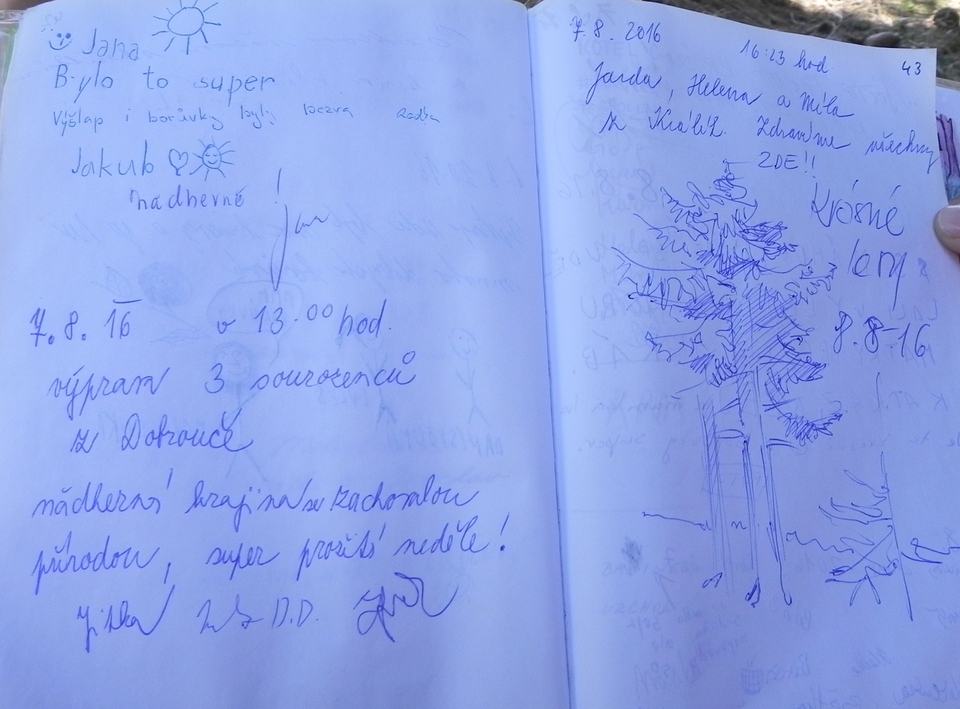 Jana
Bylo to super
Výšlap i borůvky byly Radka
Jakub
nadherné !
Jan
7. 8. 16 v 13.00 hod.
výprava 3 sourozenců
z Dobrouče
nádherná krajina se zachovalou
přírodou, super prožitá neděle!
Jitka
7. 8. 2016
16:23 hod
43
Jarda, Helena a Míla
z Králík. Zdravíme všechny
ZDE!!
Krásné
lesy
8.8-16